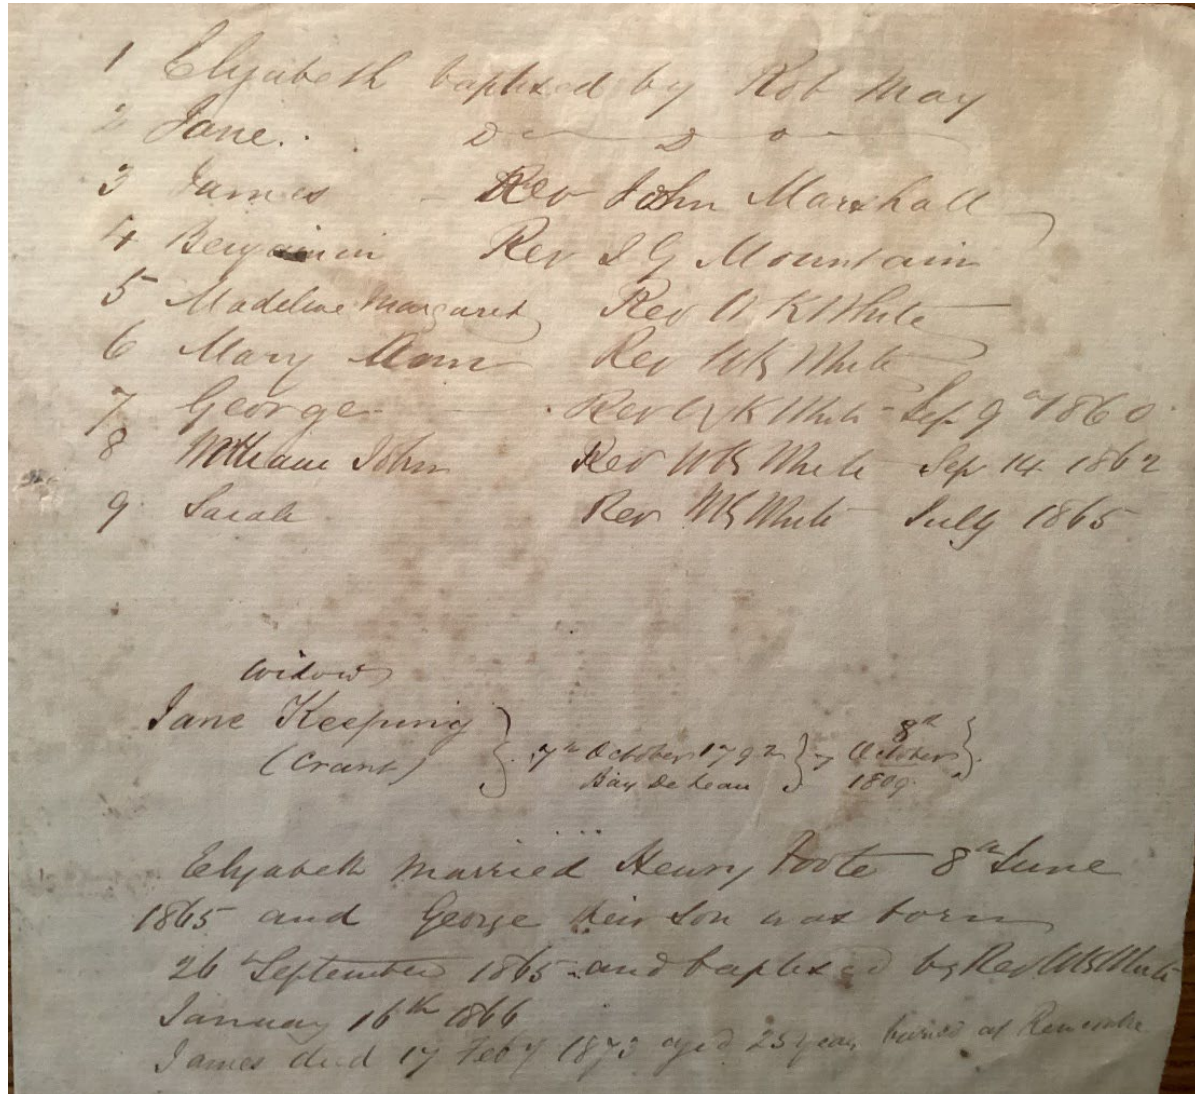 1 Elizabeth baptized by Rob May
2 Jane. Do Do
3 James - Rev John Marshall
4 Benjamin Rev J G Mountain
5 Madeline Margaret Rev W K White
6 Mary Ann Rev WK White
7 George Rev W K White - Sep 9th 1860
8 William John Rev WK White Sep 14 1862
9 Sarah Rev WK White July 1865
Widow
Jane Keeping
(Crant) } 7th October 1792 } 8th October }
Bay De Leau 1809
Elizabeth married Henry Foote 8th June
1865 and George their son was born
26th September 1865 and baptized by Rev WK White
January 16th 1866
James died 17 Feby 1873 aged 25 years buried at